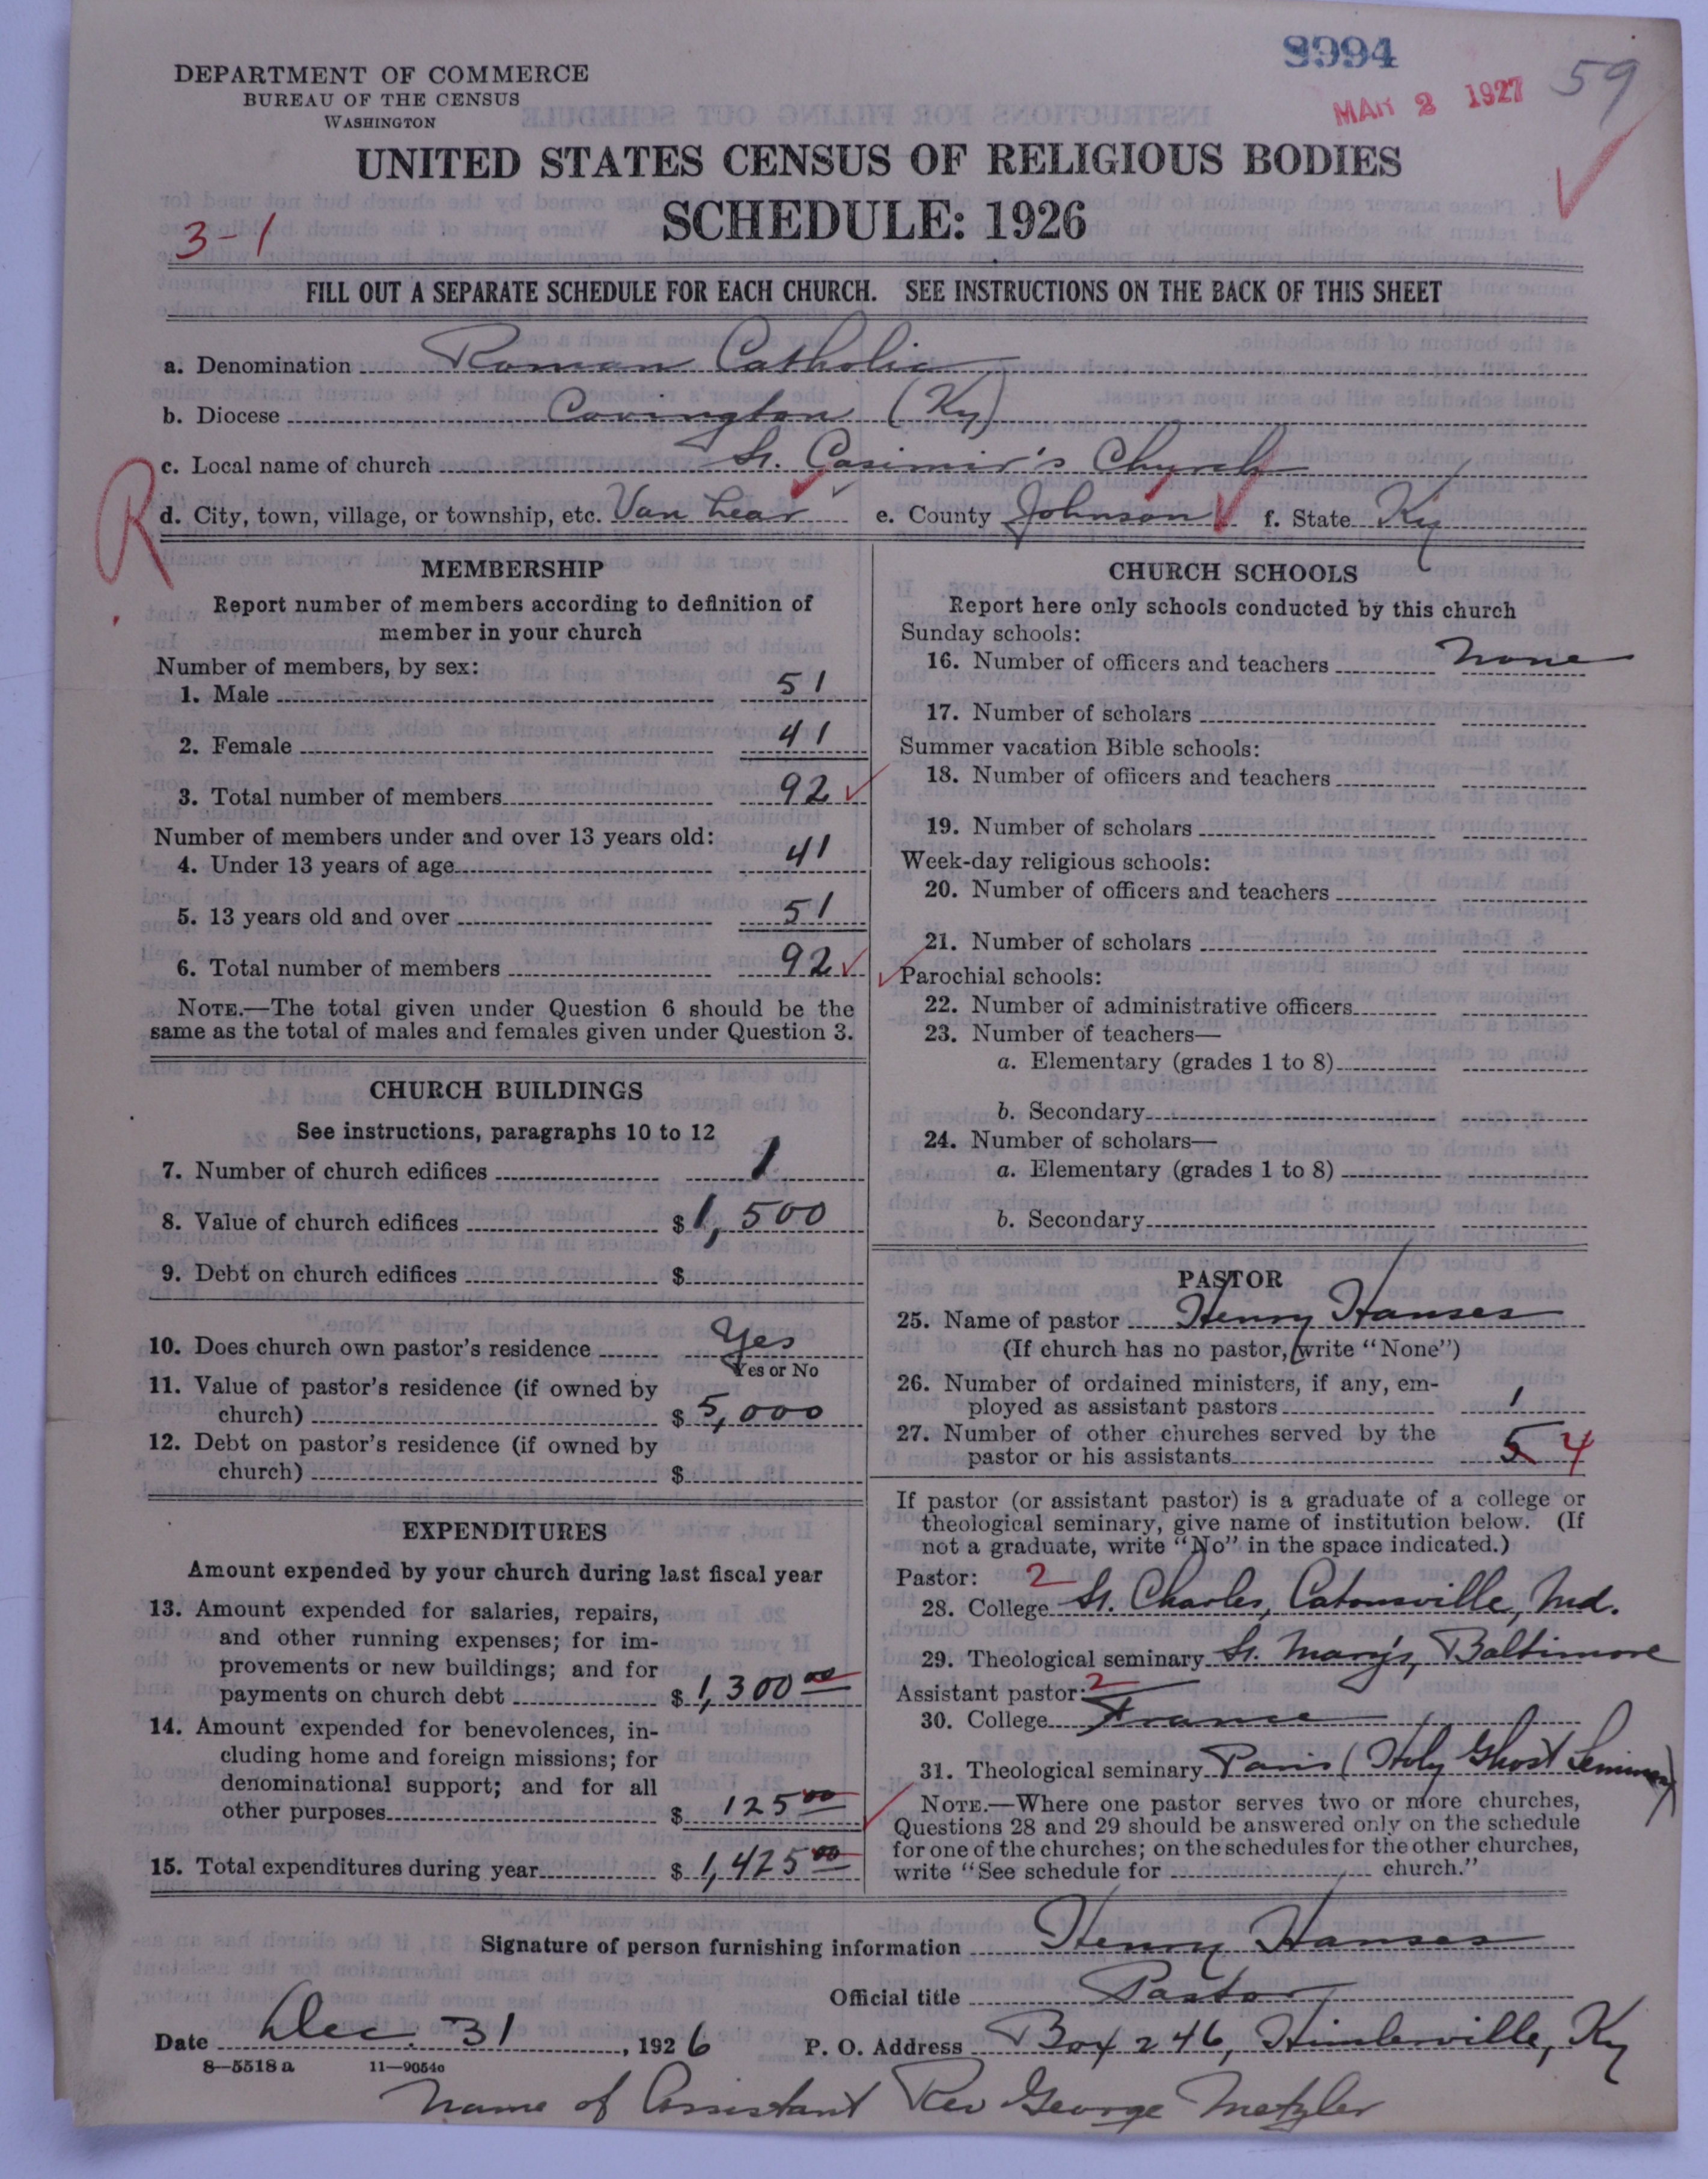 8994
MAR 2 1927
59
DEPARTMENT OF COMMERCE
BUREAU OF THE CENSUS
WASHINGTON
UNITED STATES CENSUS OF RELIGIOUS BODIES
SCHEDULE: 1926
3-1
FILL OUT A SEPARATE SCHEDULE FOR EACH CHURCH. SEE INSTRUCTIONS ON THE BACK OF THIS SHEET
a. Denomination Roman Catholic
b. Diocese Covington (Ky)
c. Local name of church St. Casimir's Church
R
d. City, town, village, or township, etc. Van Lear e. County Johnson f. State Ky
MEMBERSHIP
Report number of members according to definition of
member in your church
Number of members, by sex:
1. Male 51
2. Female 41
3. Total number of members 92
Number of members under and over 13 years old:
4. Under 13 years of age 41
5. 13 years old and over 51
6. Total number of members 92
NOTE.—The total given under Question 6 should be the
same as the total of males and females given under Question 3.
CHURCH BUILDINGS
See instructions, paragraphs 10 to 12
7. Number of church edifices 1
8. Value of church edifices $ 1,500
9. Debt on church edifices $
10. Does church own pastor's residence Yes
Yes or No
11. Value of pastor's residence (if owned by
church) $ 5,000
12. Debt on pastor's residence (if owned by
church) $
EXPENDITURES
Amount expended by your church during last fiscal year
13. Amount expended for salaries, repairs,
and other running expenses; for im-
provements or new buildings; and for
payments on church debt $ 1,300 00
14. Amount expended for benevolences, in-
cluding home and foreign missions; for
denominational support; and for all
other purposes $ 125 00
15. Total expenditures during year $ 1,425 00
CHURCH SCHOOLS
Report here only schools conducted by this church
Sunday schools:
16. Number of officers and teachers None
17. Number of scholars
Summer vacation Bible schools:
18. Number of officers and teachers
19. Number of scholars
Week-day religious schools:
20. Number of officers and teachers
21. Number of scholars
Parochial schools:
22. Number of administrative officers
23. Number of teachers—
a. Elementary (grades 1 to 8)
b. Secondary
24. Number of scholars—
a. Elementary (grades 1 to 8)
b. Secondary
PASTOR
25. Name of pastor Henry Hanses
(If church has no pastor, write "None")
26. Number of ordained ministers, if any, em-
ployed as assistant pastors 1
27. Number of other churches served by the
pastor or his assistants 5 4
If pastor (or assistant pastor) is a graduate of a college or
theological seminary, give name of institution below. (If
not a graduate, write "No" in the space indicated.)
Pastor: 2
28. College St. Charles, Catonsville, Md.
29. Theological seminary St. Mary's, Baltimore
Assistant pastor: 2
30. College France
31. Theological seminary Paris (Holy Ghost Seminary)
NOTE.—Where one pastor serves two or more churches,
Questions 28 and 29 should be answered only on the schedule
for one of the churches; on the schedules for the other churches,
write "See schedule for church."
Signature of person furnishing information Henry Hanses
Official title Pastor
Date Dec. 31, 1926 P. O. Address Box 246, Himlerville, Ky
8—5518 a 11—9054c
Name of Assistant Rev George Metzler